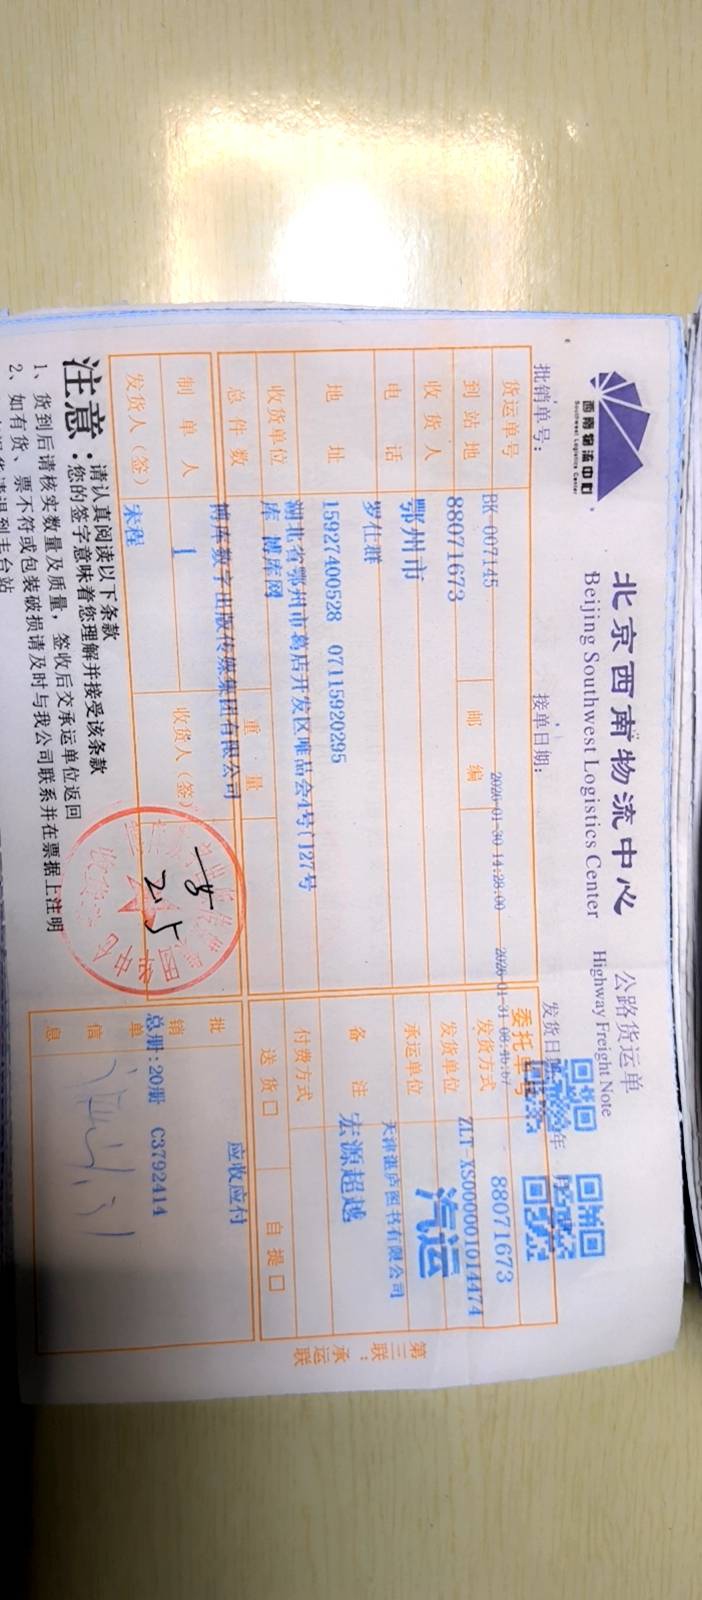 西南物流中心
Southwest Logistics Center
北京西南物流中心
Beijing Southwest Logistics Center
公路货运单
Highway Freight Note
批销单号：
接单日期：
发货日期
年
BK-007145
2026-01-30 14:28:00
委托单号
88071673
货运单号
88071673
发货方式
ZLT-XS0000001014474
汽运
到站地
鄂州市
邮编
发货单位
天津湛庐图书有限公司
收货人
罗仕群
承运单位
宏源超越
电话
15927400528 07115920295
备注
地址
湖北省鄂州市葛店开发区唯品会4号门27号
库 博库网
付费方式
收货单位
博库数字出版传媒集团有限公司
送货口
自提口
总件数
1
重量
应收应付
制单人
宋程
收货人（签）
批销单信息
总册：20册 C3792414
发货人（签）
25
第三联：承运联
注意：
请认真阅读以下条款
您的签字意味着您理解并接受该条款
1、货到后请核实数量及质量，签收后交承运单位返回
2、如有货、票不符或包装破损请及时与我公司联系并在票据上注明